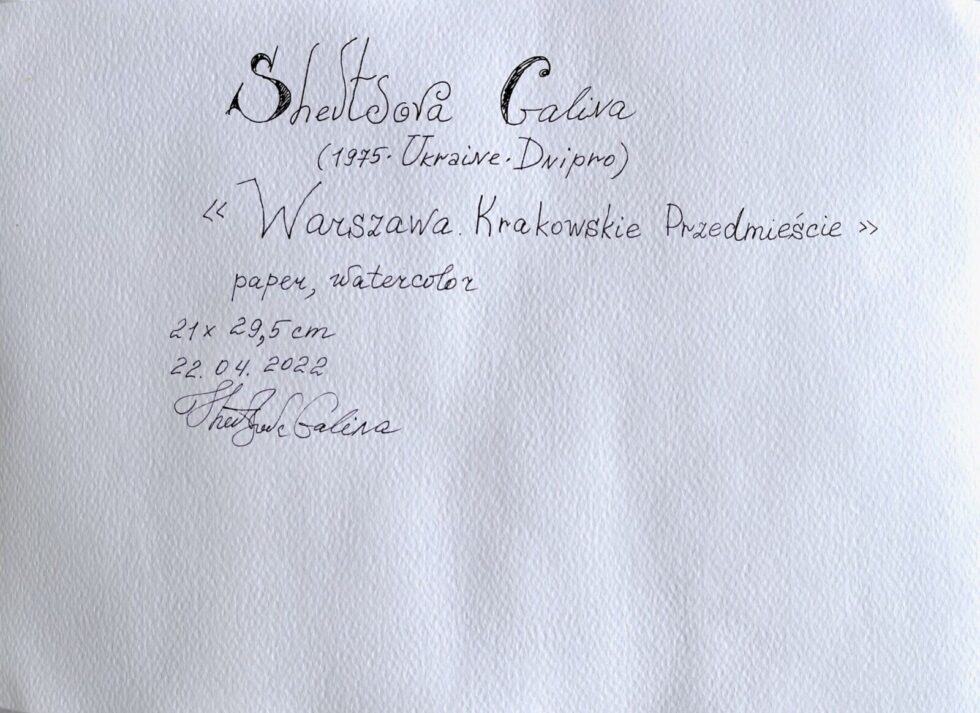 Shevtsova Galina
(1975. Ukraine. Dnipro)
« Warszawa. Krakowskie Przedmieście »
paper, watercolor
21x 29,5 cm
22.04.2022
Galina